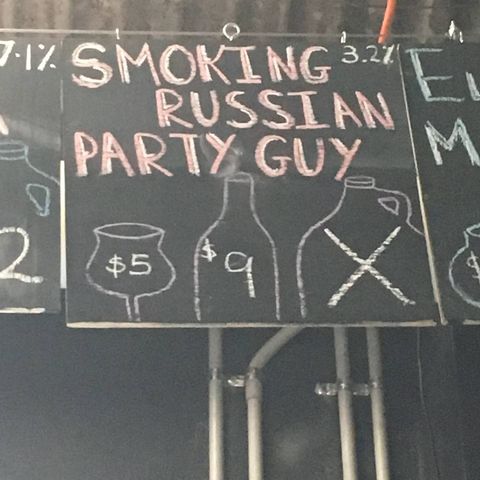 7.1%
SMOKING 3.2%
RUSSIAN
PARTY GUY
2
$5
$9
X
M
$